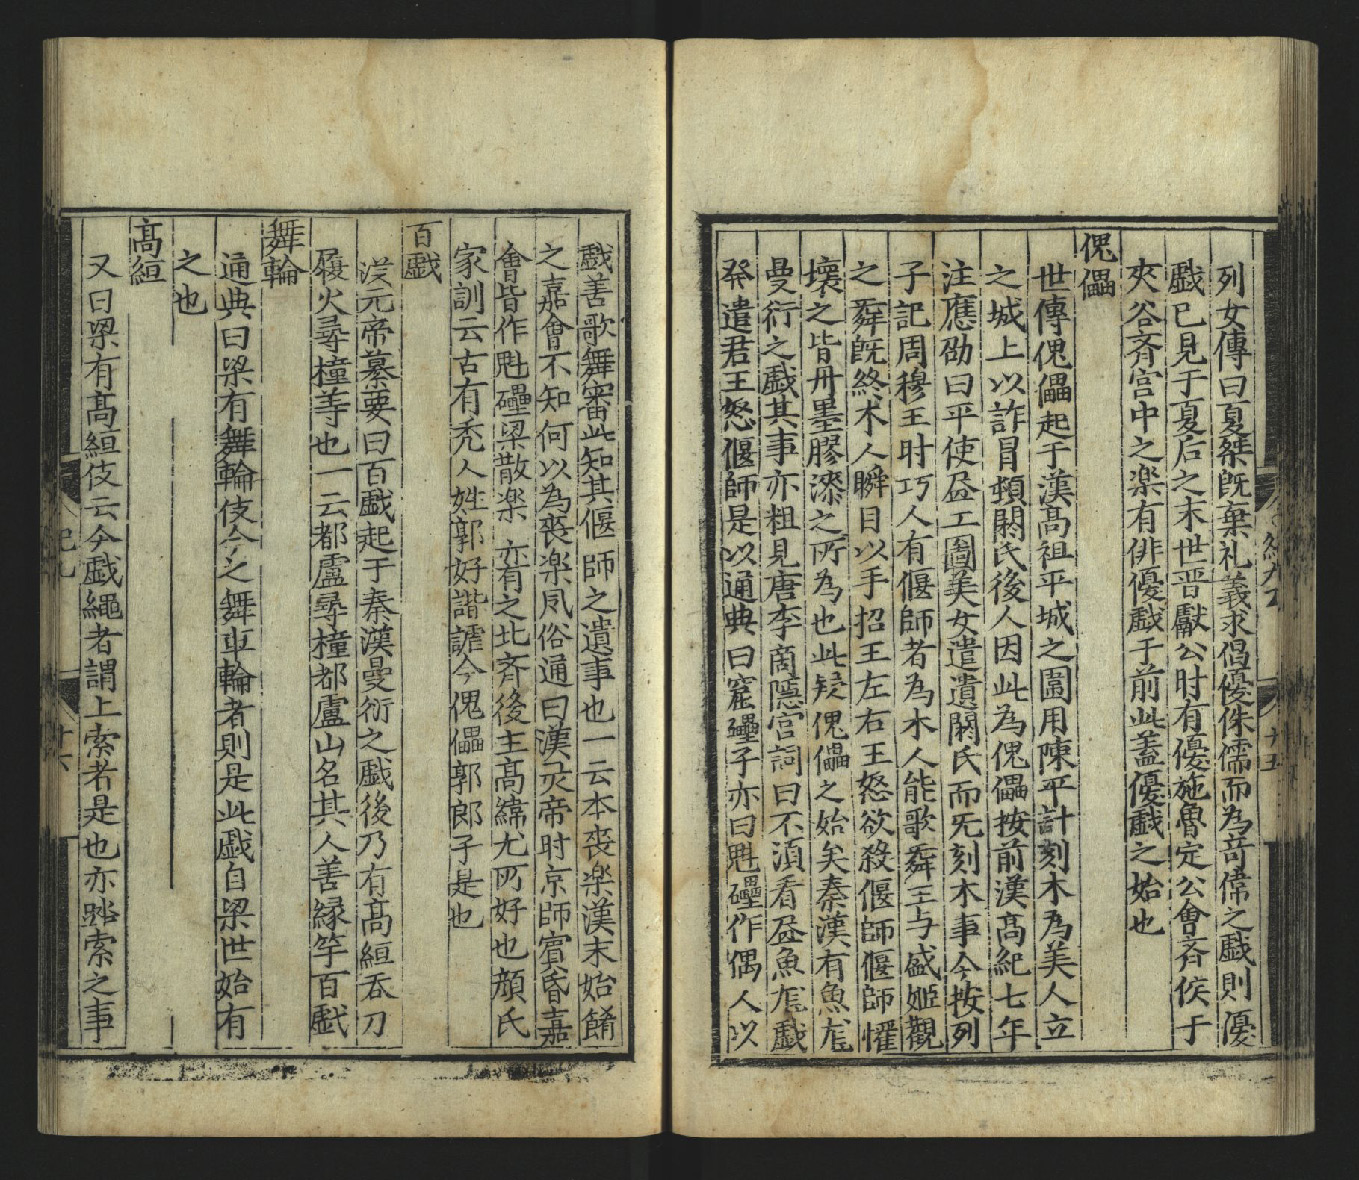 列女傳曰夏桀既棄礼義求倡優侏儒而為竒偉之戱則優
戱已見于夏后之末世晋獻公时有優施魯定公會斉侯于
夾谷斉宫中之楽有俳優戱于前此盖優戱之始也
傀儡
世傳傀儡起于漢髙祖平城之圍用陳平計刻木為美人立
之城上以詐冒頓閼氏後人因此為傀儡按前漢髙紀七年
注應劭曰平使𦘕工圖美女遣遺閼氏而无刻木事今按列
子記周穆王时巧人有偃師者為木人能歌舞王与盛姬觀
之舞既終木人瞬目以手招王左右王怒欲殺偃師偃師懼
壊之皆丹墨膠漆之所為也此疑傀儡之始矣秦漢有魚龙
曼衍之戱其事亦粗見唐李商隠宫詞曰不湏看尽魚龙戱
癹遣君王怒偃師是以通典曰窟礧子亦曰魁礧作偶人以
戱善歌舞審此知其偃師之遺事也一云本丧楽漢末始餙
之嘉會不知何以為丧楽風俗通曰漢灵帝时京師賔昏嘉
會皆作魁礧梁散楽亦有之北斉後主髙緯尤所好也顔氏
家訓云古有秃人姓郭好諧謔今傀儡郭郎子是也
百戱
漢元帝纂要曰百戱起于秦漢曼衍之戱後乃有髙絙吞刀
履火尋橦等也一云都盧尋橦都盧山名其人善縁竿百戱
舞輪
通典曰梁有舞輪伎今之舞車輪者則是此戱自梁世始有
之也
髙絙
又曰梁有髙絙伎云今戱繩者謂上索者是也亦踏索之事